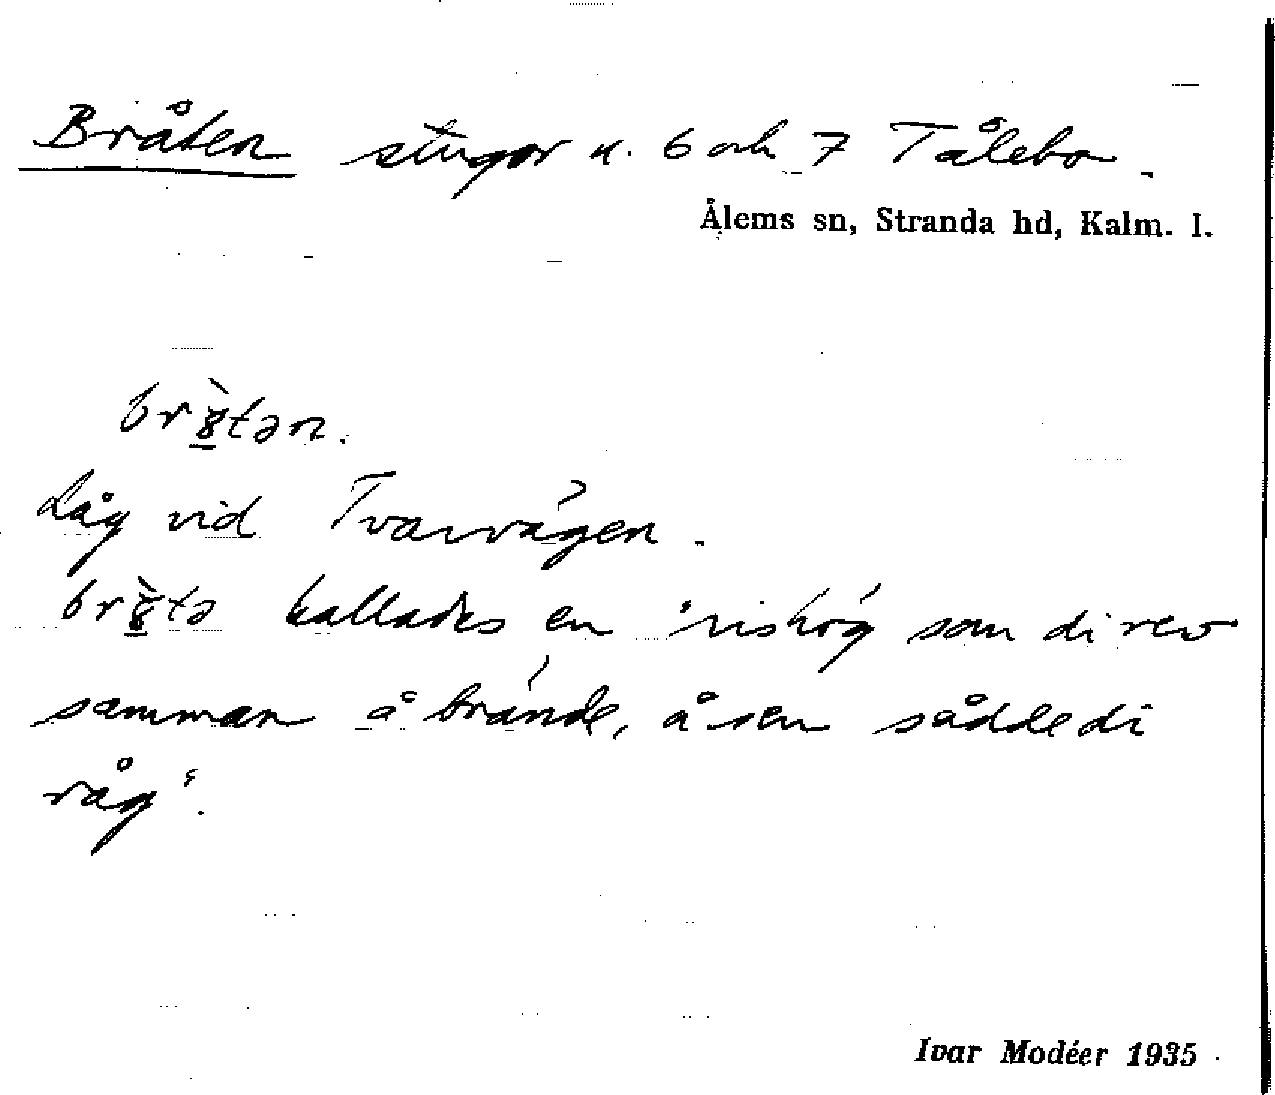 Bråten stugor u. 6 och 7 Tålebo.
Ålems sn, Stranda hd, Kalm. l.
br8̀tən.
Låg vid Tvärvägen.
br8̀tə kallades en 'rishög som di rev
samman å brände, å sen sådde di
råg'.
Ivar Modéer 1935